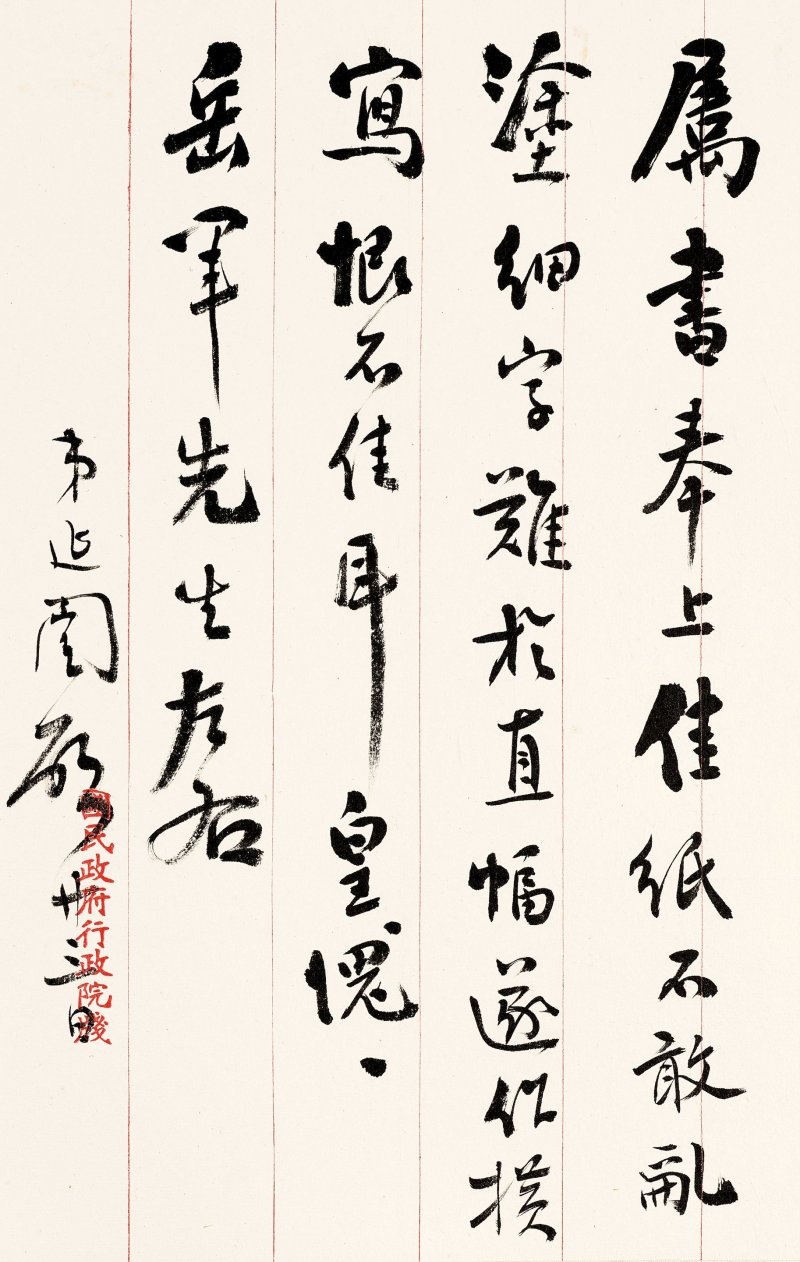 屬書奉上佳紙不敢亂
塗細字難於直幅遂作橫
寫恨不佳耳皇愧、
岳軍先生左右
弟延闓敬
廿三日
國民政府行政院牋